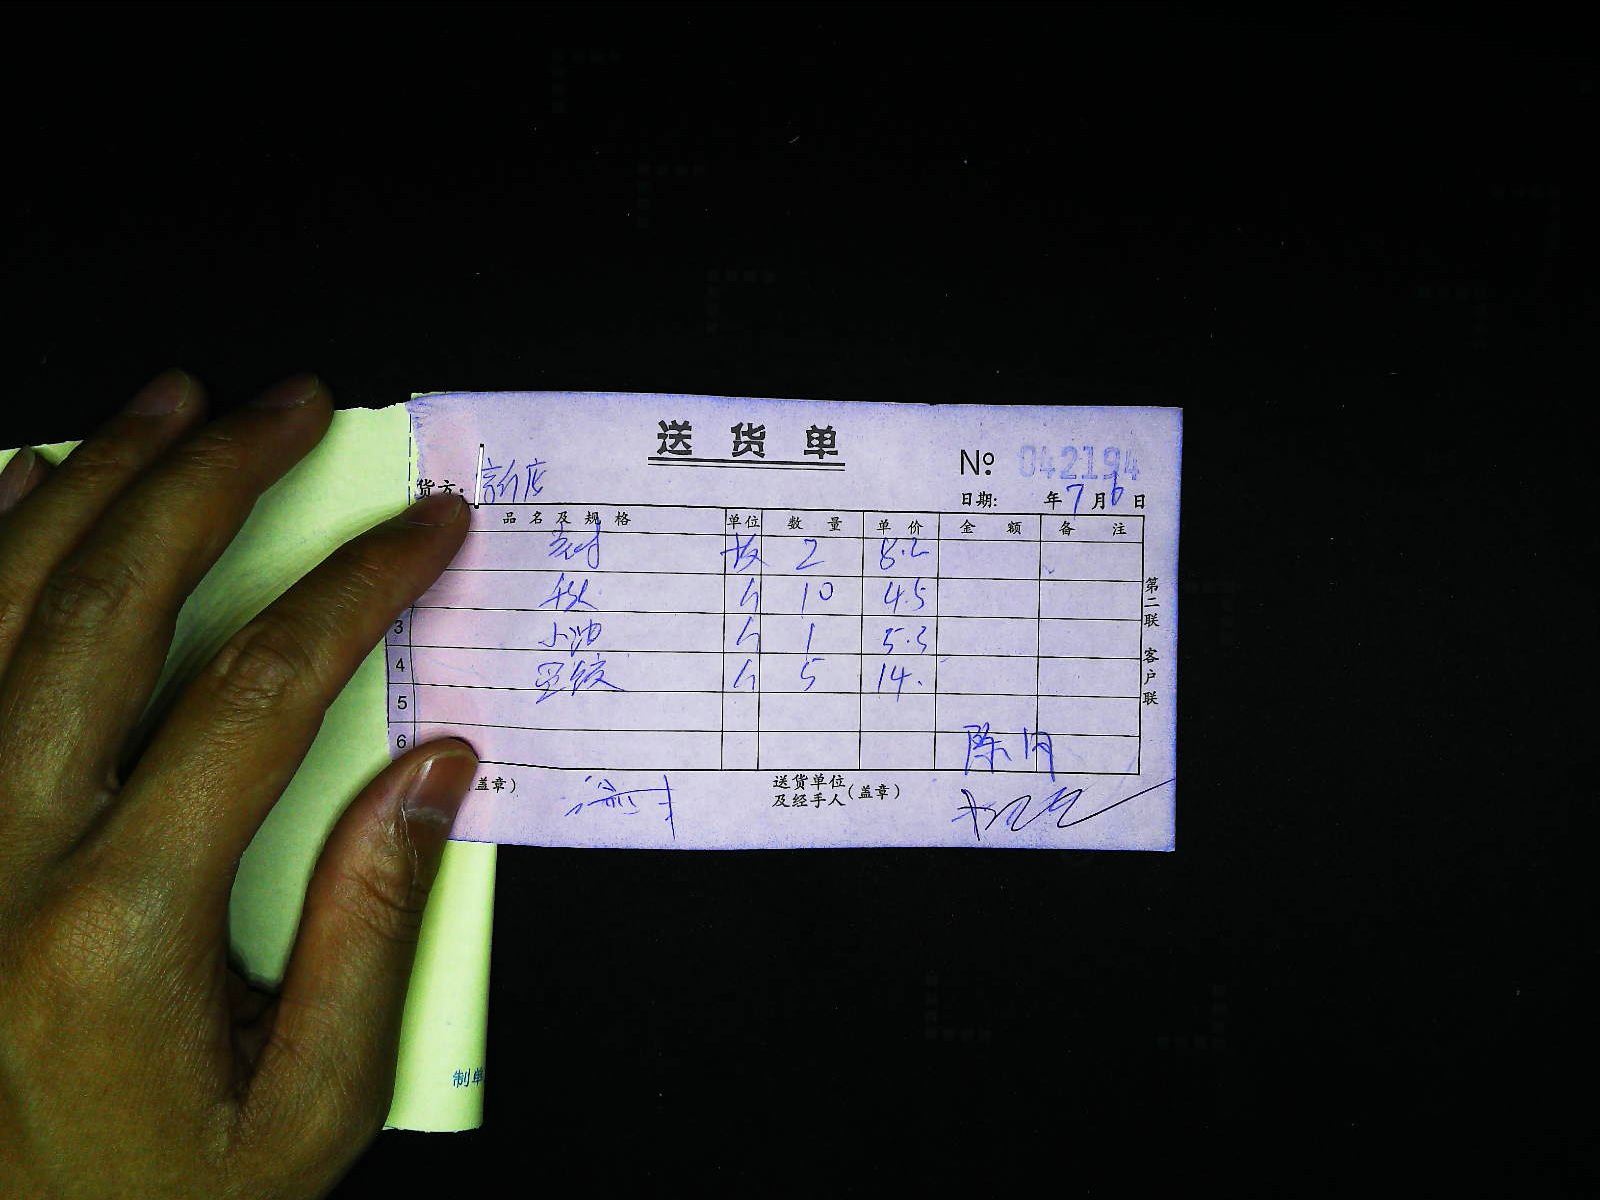 送货单
№ 042194
货方: 新店
日期: 年 7 月 6 日
品名及规格 单位 数量 单价 金额 备注
板 2 8.2
个 10 4.5
3 小油 个 1 5.3
4 个 5 14.
5
6
陈
盖章)
送货单位
及经手人(盖章)
第二联 客户联
制单